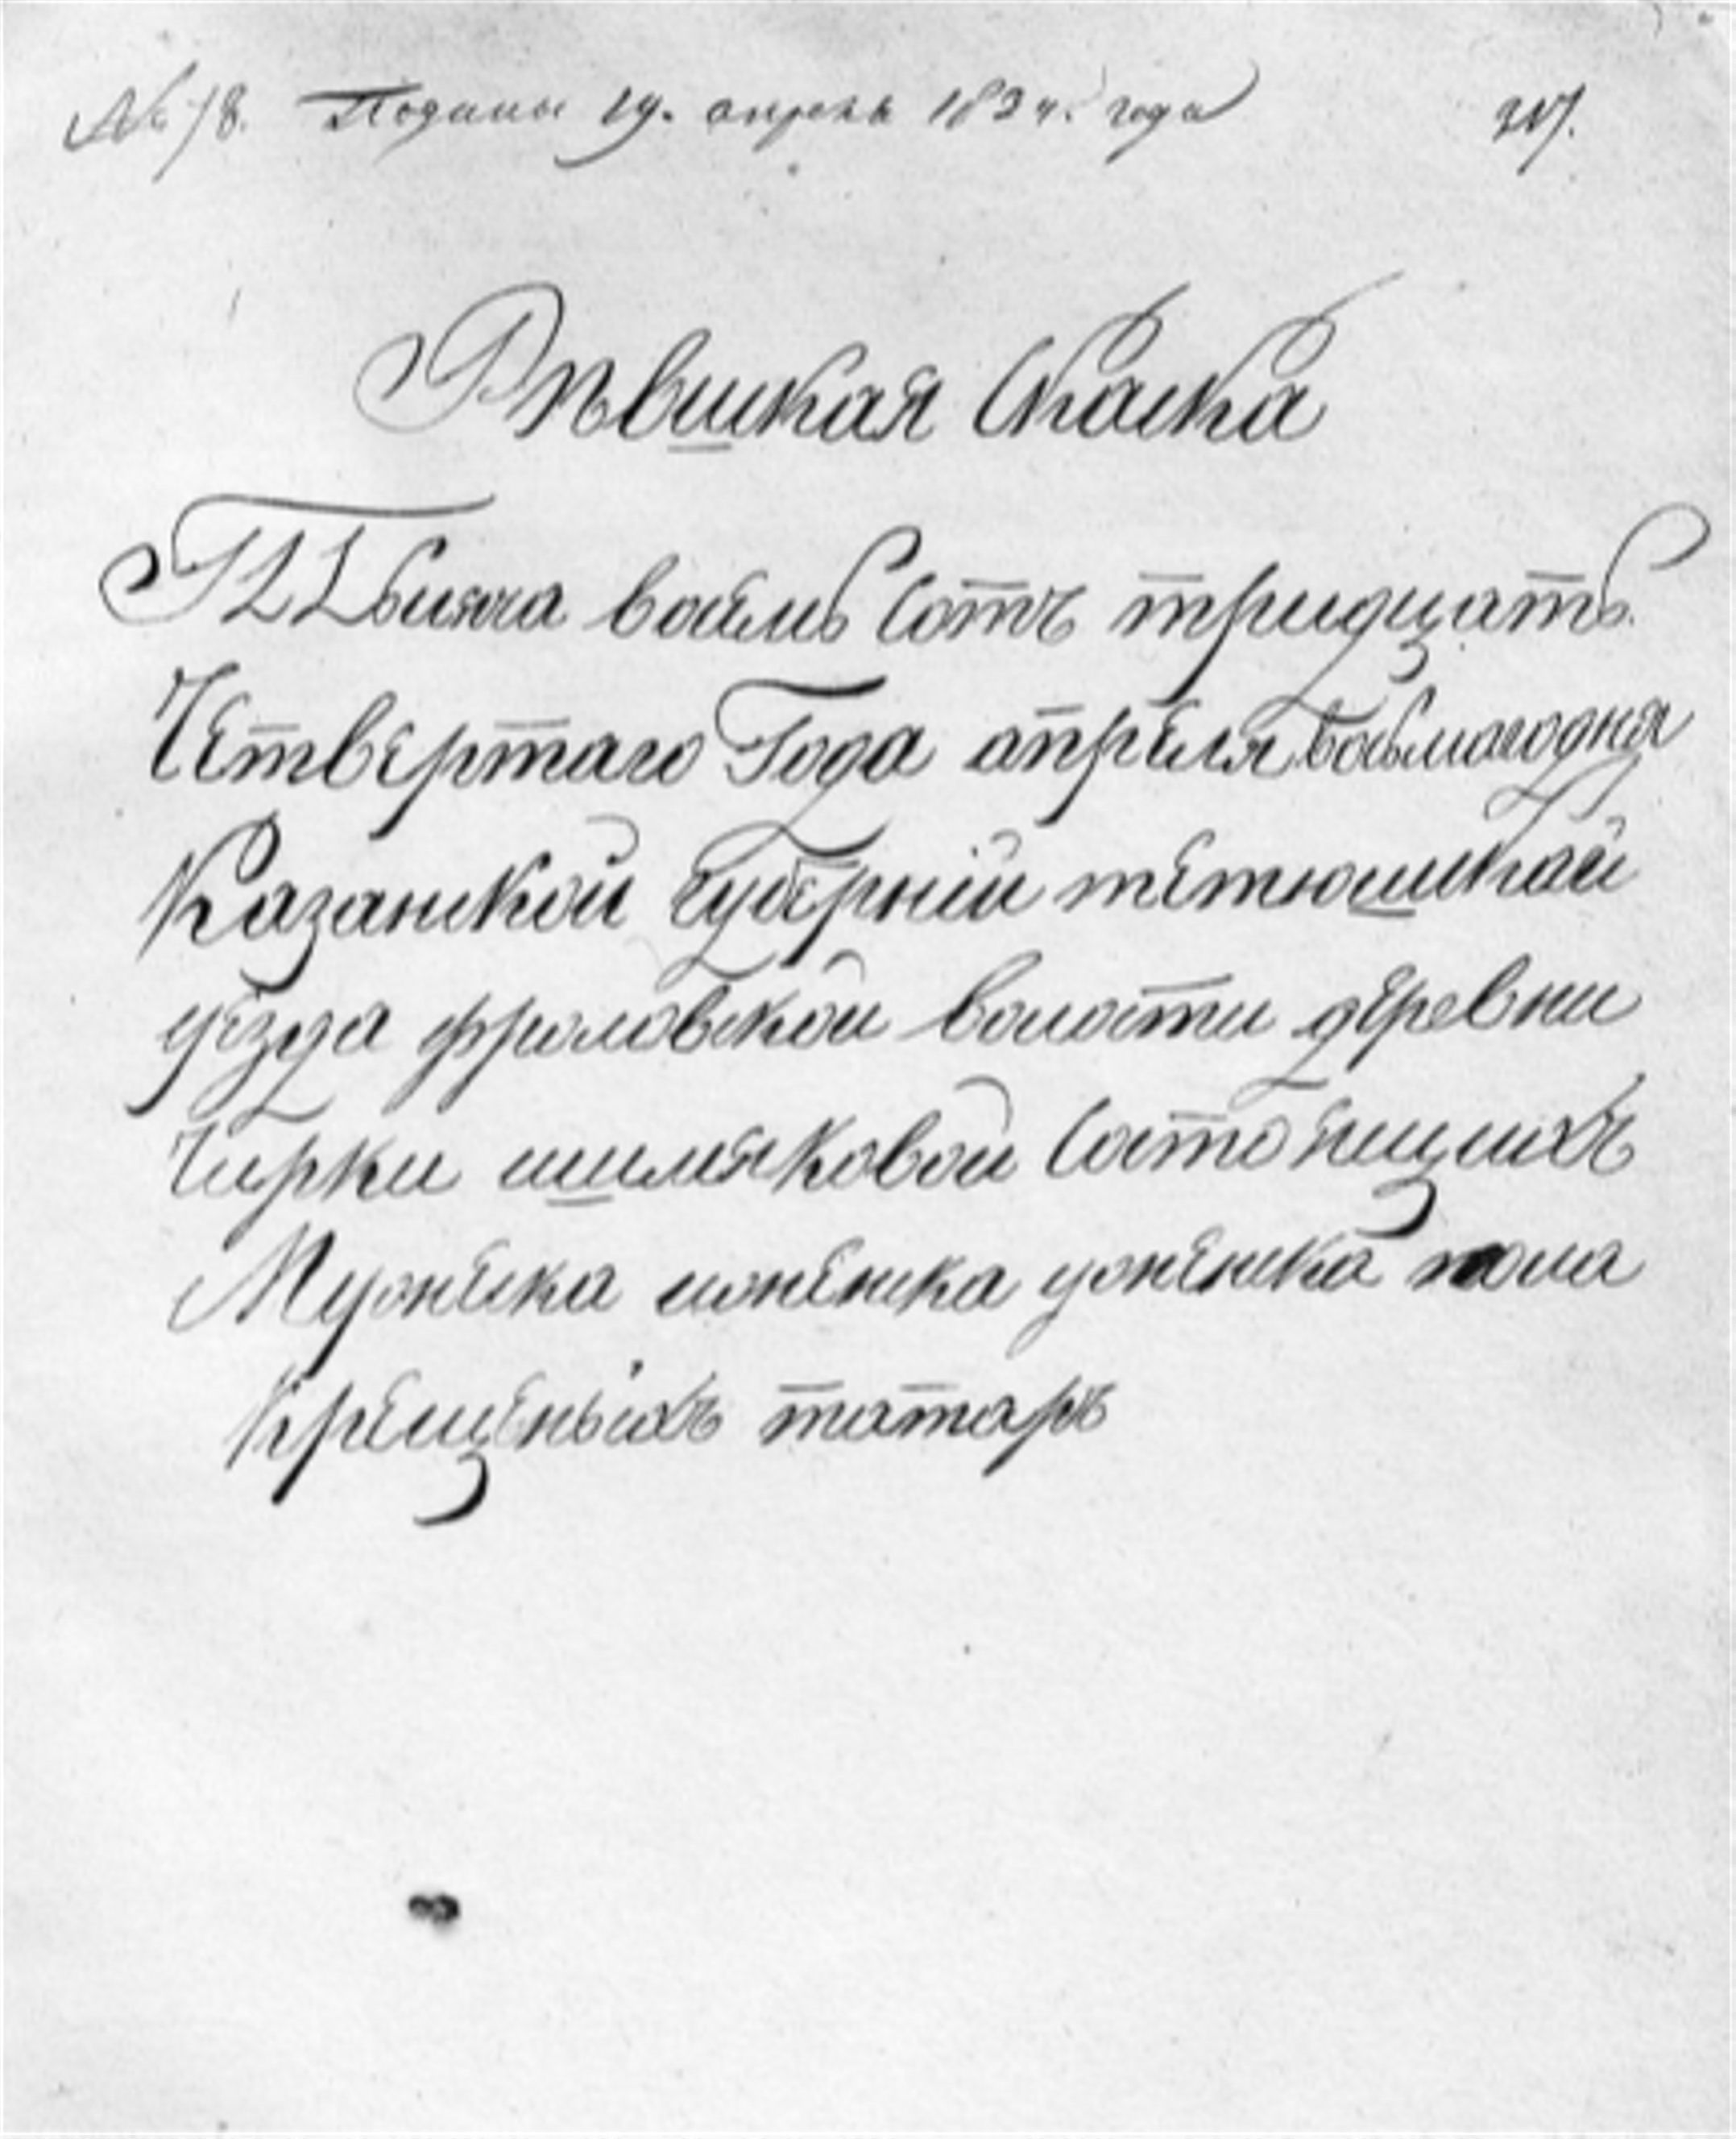 № 78. Поданы 19. апреля 1834. года
317.
Рѣвиская Скаска
Тысяча восемь Сотъ тридцать
Четвертаго Года апреля восьмаго дня
Казанской губерніи тетюшской
уезда фроловской волости деревни
Чирки шимяковой Состоящихъ
Мужеска и женска пола
Крещеныхъ татаръ